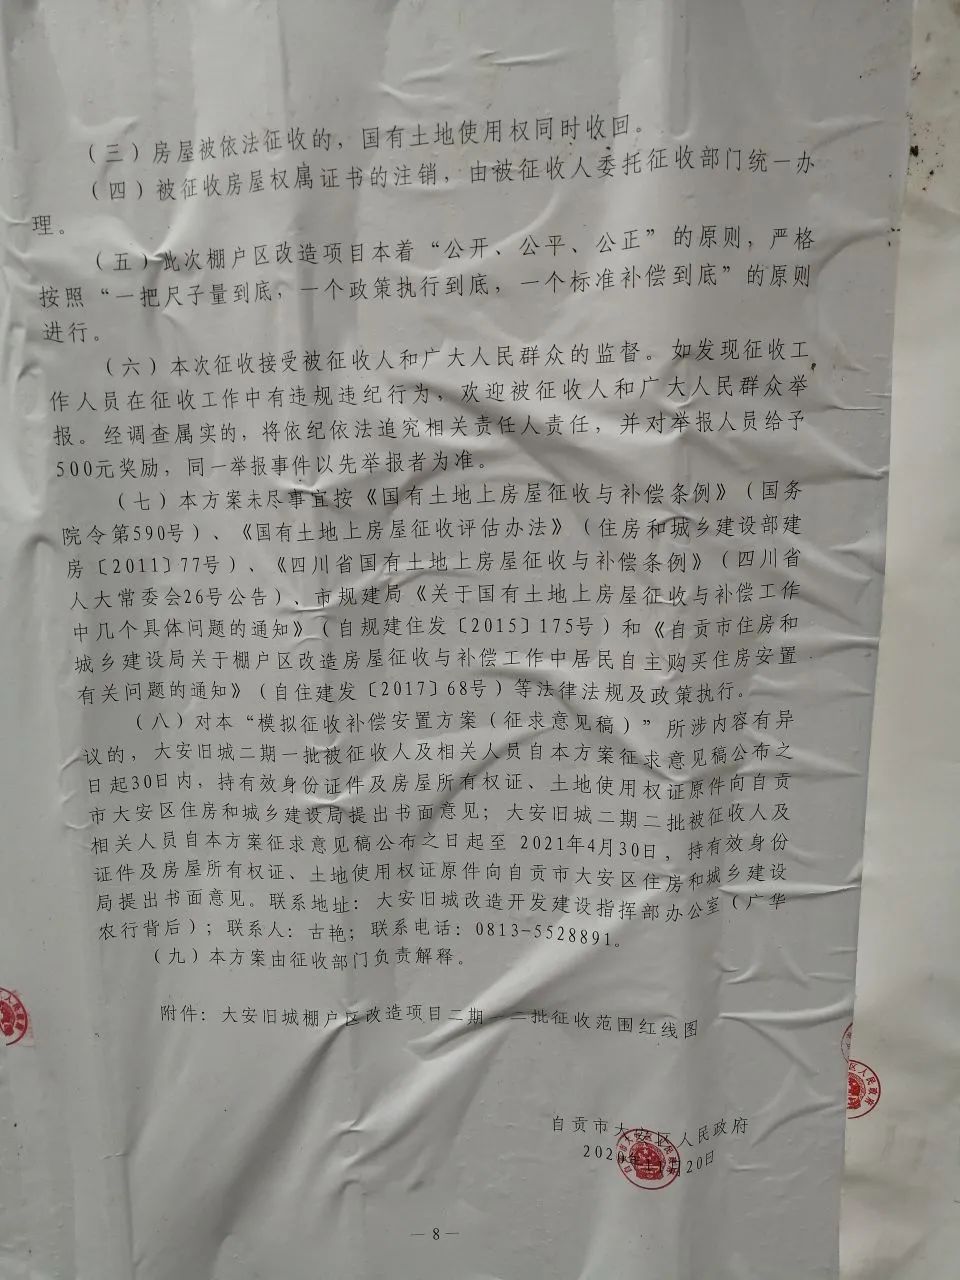 （三）房屋被依法征收的，国有土地使用权同时收回。
（四）被征收房屋权属证书的注销，由被征收人委托征收部门统一办
理。
（五）此次棚户区改造项目本着“公开、公平、公正”的原则，严格
按照“一把尺子量到底，一个政策执行到底，一个标准补偿到底”的原则
进行。
（六）本次征收接受被征收人和广大人民群众的监督。如发现征收工
作人员在征收工作中有违规违纪行为，欢迎被征收人和广大人民群众举
报。经调查属实的，将依纪依法追究相关责任人责任，并对举报人员给予
500元奖励，同一举报事件以先举报者为准。
（七）本方案未尽事宜按《国有土地上房屋征收与补偿条例》（国务
院令第590号）、《国有土地上房屋征收评估办法》（住房和城乡建设部建
房〔2011〕77号）、《四川省国有土地上房屋征收与补偿条例》（四川省
人大常委会26号公告）、市规建局《关于国有土地上房屋征收与补偿工作
中几个具体问题的通知》（自规建住发〔2015〕175号）和《自贡市住房和
城乡建设局关于棚户区改造房屋征收与补偿工作中居民自主购买住房安置
有关问题的通知》（自住建发〔2017〕68号）等法律法规及政策执行。
（八）对本“模拟征收补偿安置方案（征求意见稿）”所涉内容有异
议的，大安旧城二期一批被征收人及相关人员自本方案征求意见稿公布之
日起30日内，持有效身份证件及房屋所有权证、土地使用权证原件向自贡
市大安区住房和城乡建设局提出书面意见；大安旧城二期二批被征收人及
相关人员自本方案征求意见稿公布之日起至 2021年4月30日，持有效身份
证件及房屋所有权证、土地使用权证原件向自贡市大安区住房和城乡建设
局提出书面意见。联系地址：大安旧城改造开发建设指挥部办公室（广华
农行背后）；联系人：古艳；联系电话：0813-5528891。
（九）本方案由征收部门负责解释。
附件：大安旧城棚户区改造项目二期一二批征收范围红线图
自贡市大安区人民政府
20日
— 8 —
区人民政府